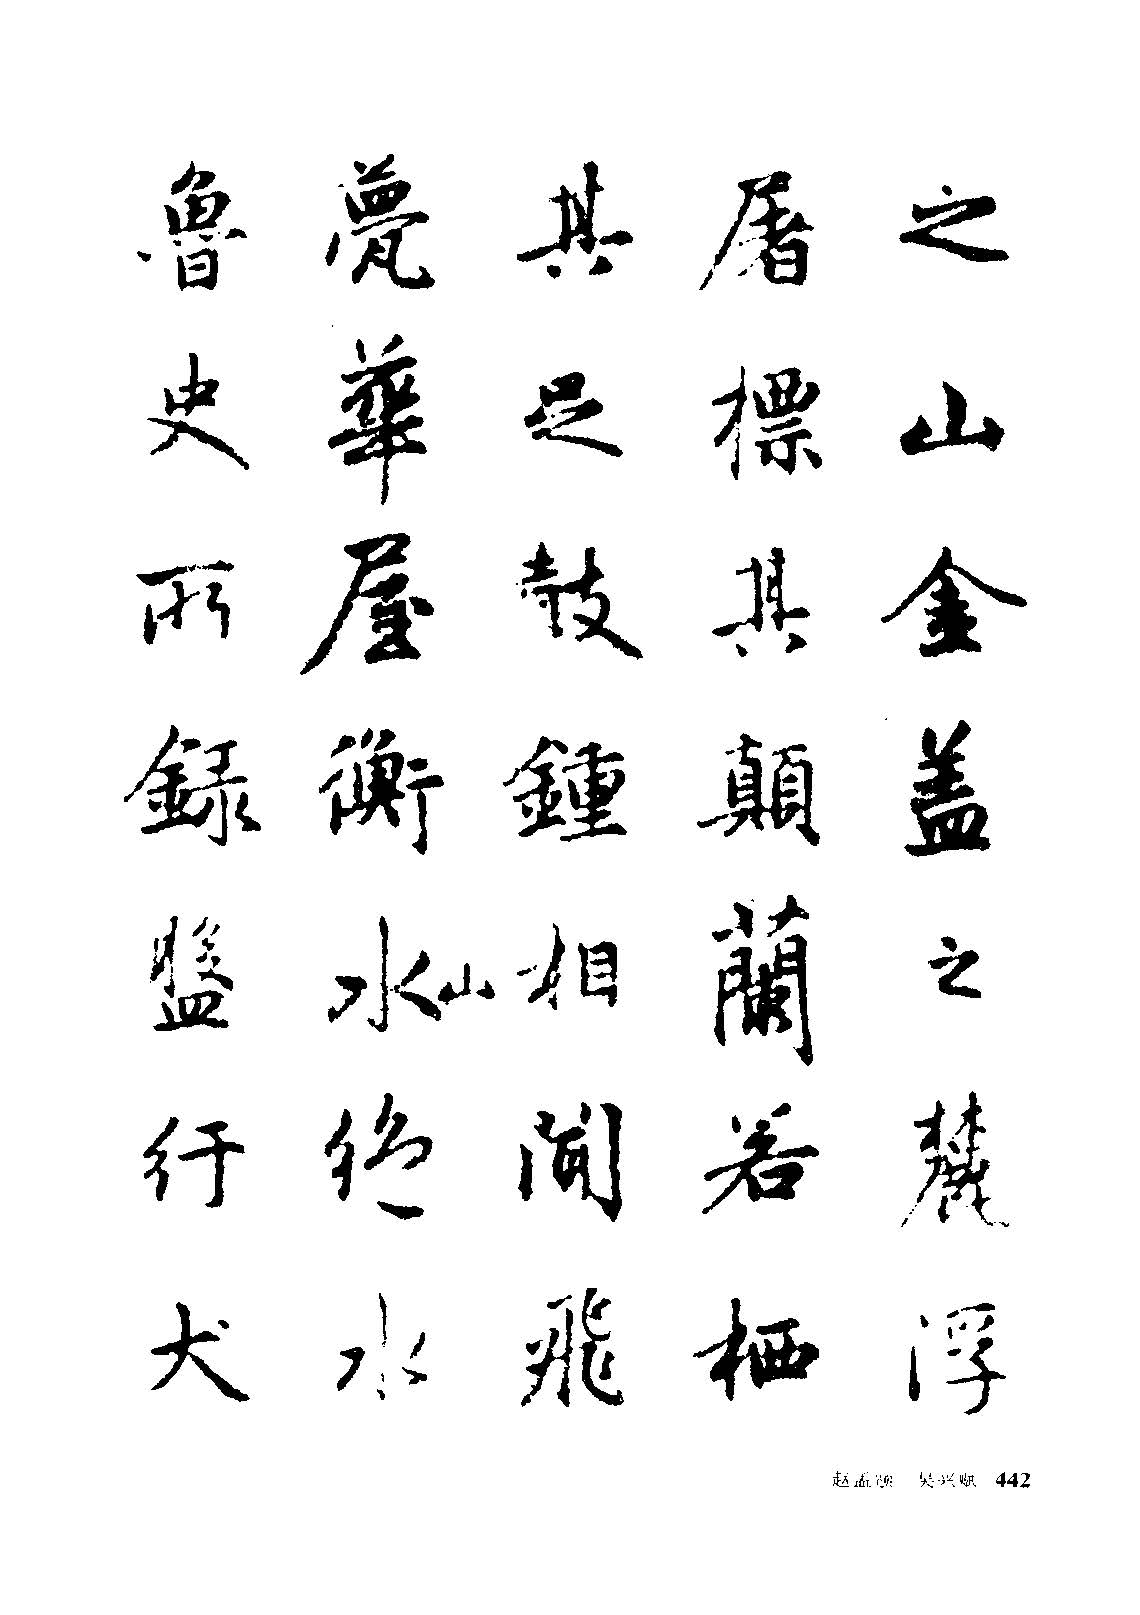 之山金盖之麓浮
屠標其顛蘭若栖
其足鼓鍾相聞飛
甍華屋衡水山絕水
魯史所録盤行犬
赵孟頫 吴兴赋 442